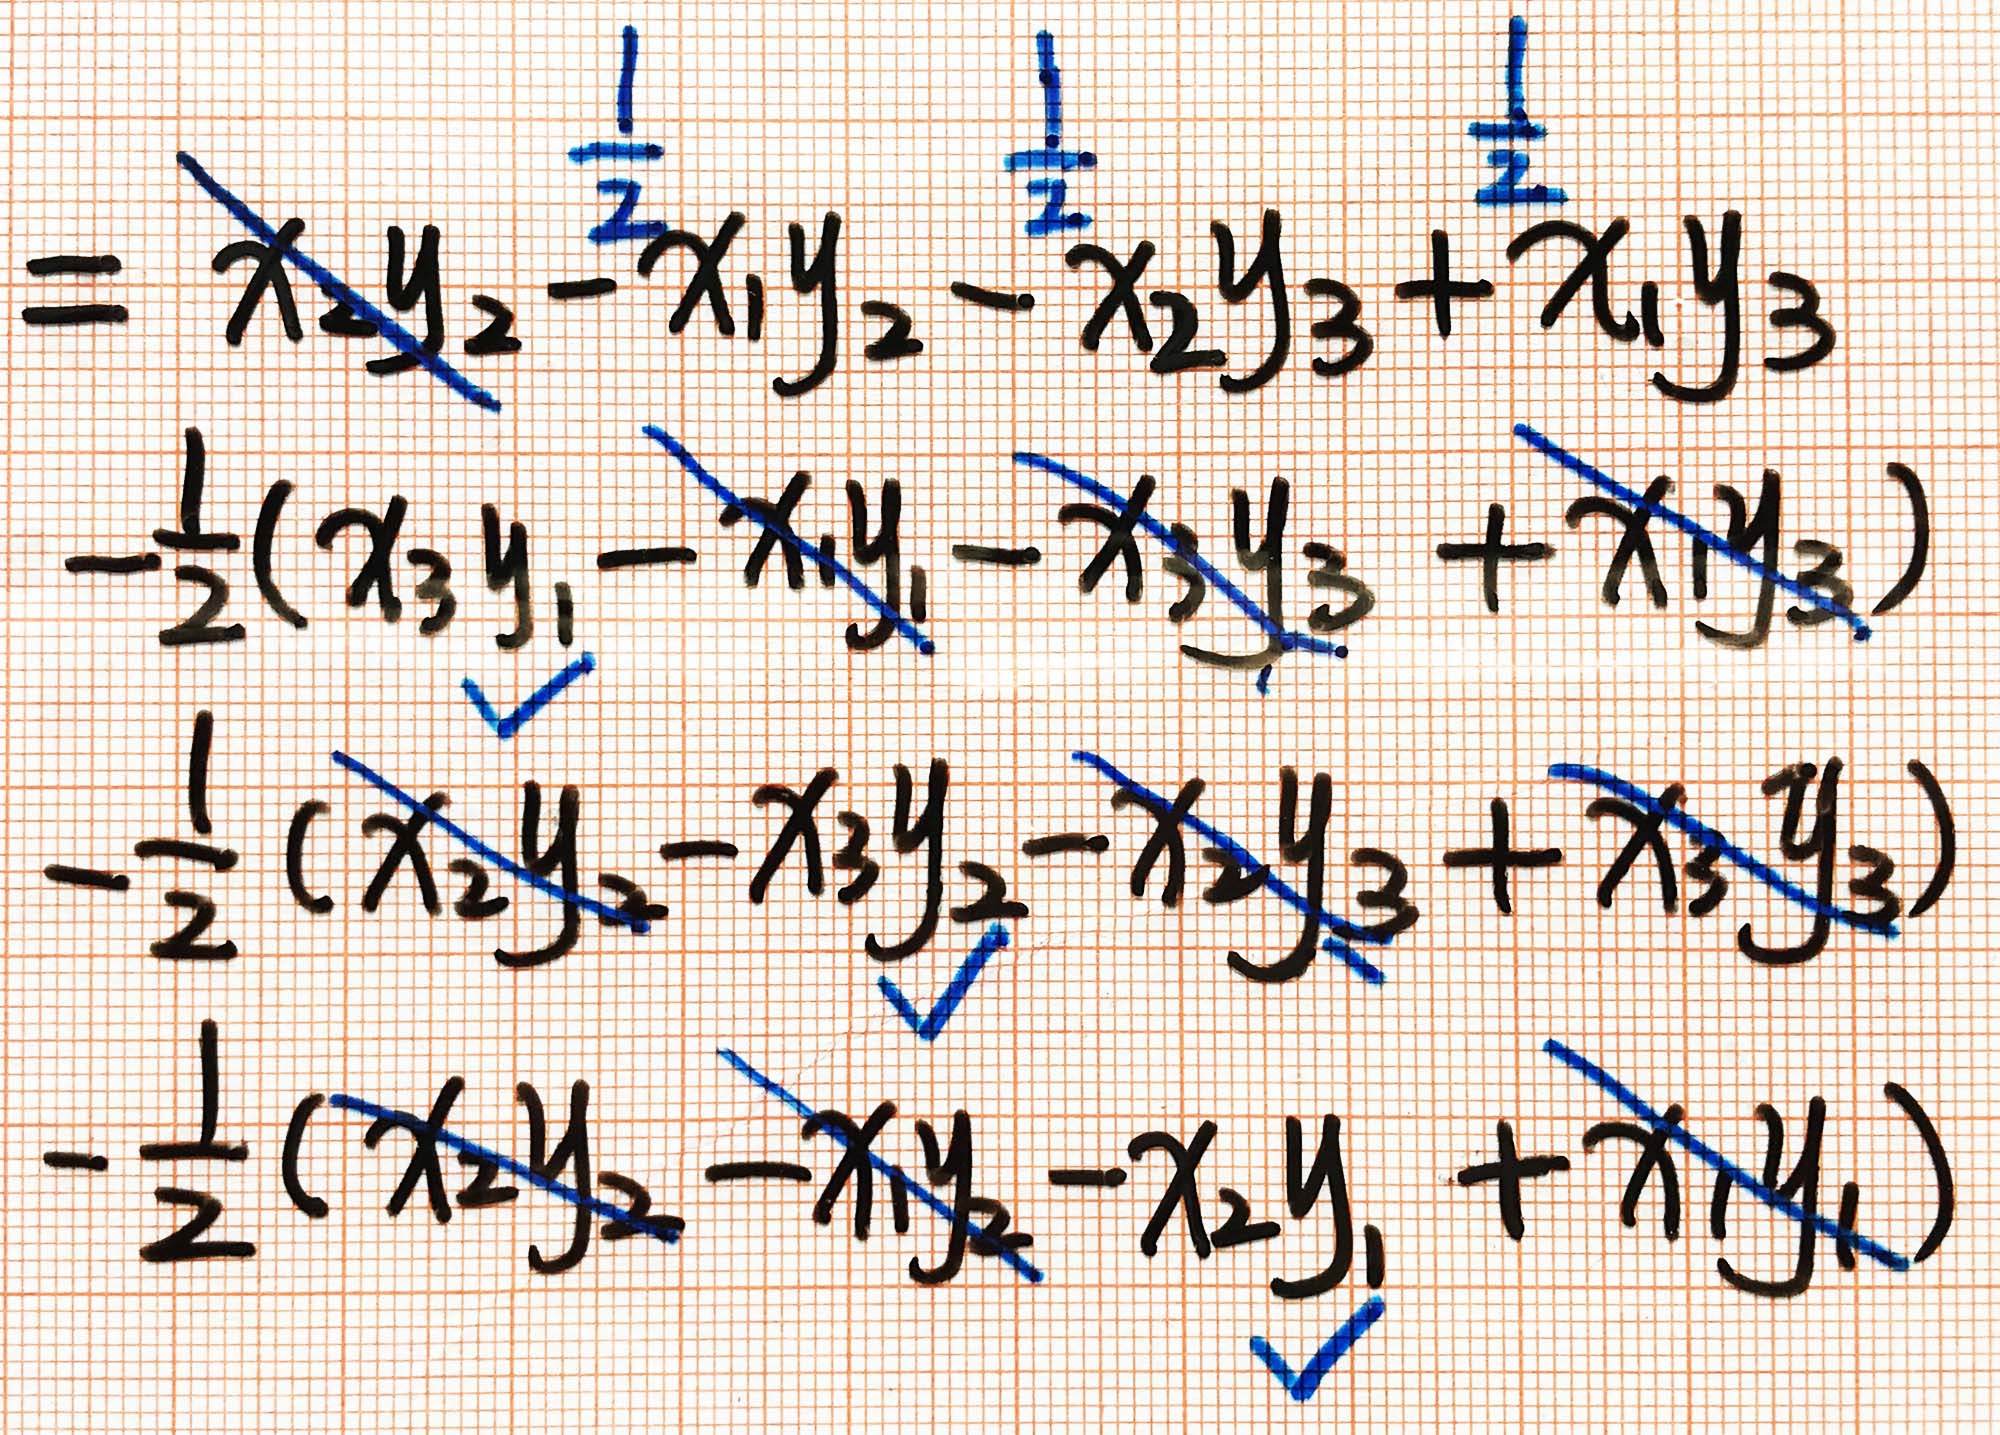 1/2 1/2 1/2
= x₂y₂ - x₁y₂ - x₂y₃ + x₁y₃
- 1/2 (x₃y₁ - x₁y₁ - x₃y₃ + x₁y₃)
- 1/2 (x₂y₂ - x₃y₂ - x₂y₃ + x₃y₃)
- 1/2 (x₂y₂ - x₁y₂ - x₂y₁ + x₁y₁)